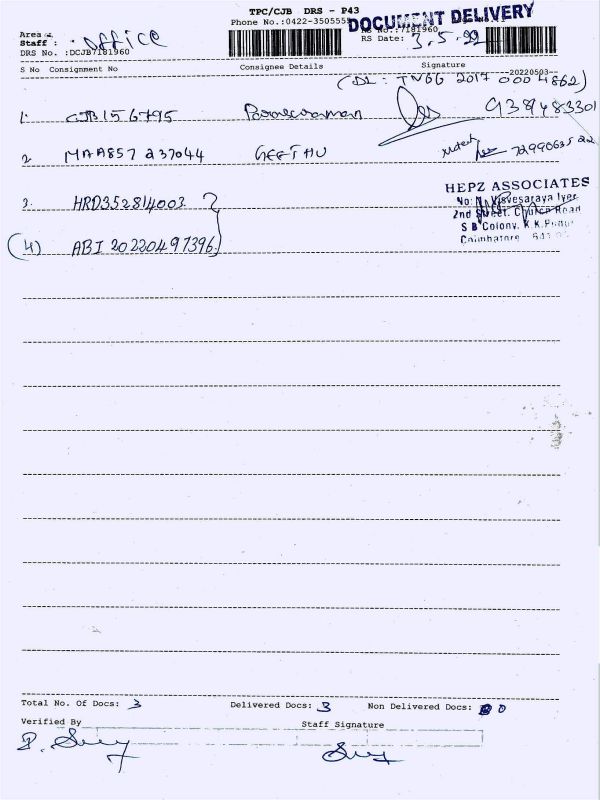 TPC/CJB DRS - P43
Phone No.:0422-3505555
DOCUMENT DELIVERY
Area &
Staff : Office
DRS No. :DCJB7181960
RS No.:7181960
RS Date: 3.5.22
S No Consignment No Consignee Details Signature
20220503
(DL: TN66 2017 0004862)
1. CJB156795
2. MAA857237044 GEETHU 7299063522
3. HRD352814003
(4) ABI 20220497396
HEPZ ASSOCIATES
No: Visvesaraya Iyer
2nd Street, Church Road
S B Colony, K.K.Pudur
Coimbatore
Total No. Of Docs: 3 Delivered Docs: 3 Non Delivered Docs: 0
Verified By Staff Signature